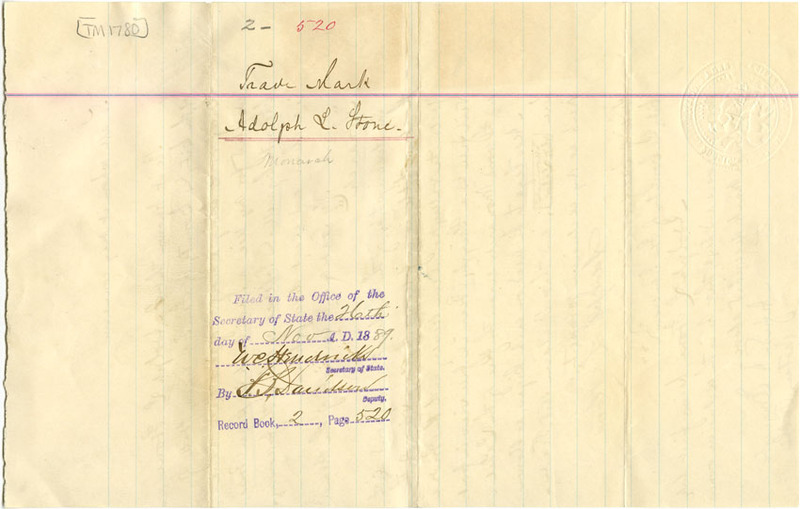 [TM1780]
2 - 520
Trade Mark
Adolph L. Stone.
Monarch
Filed in the Office of the
Secretary of State the
day of Nov A. D. 1889.
W C Hendricks
Secretary of State.
By Davidson
Deputy.
Record Book, 2, Page 520